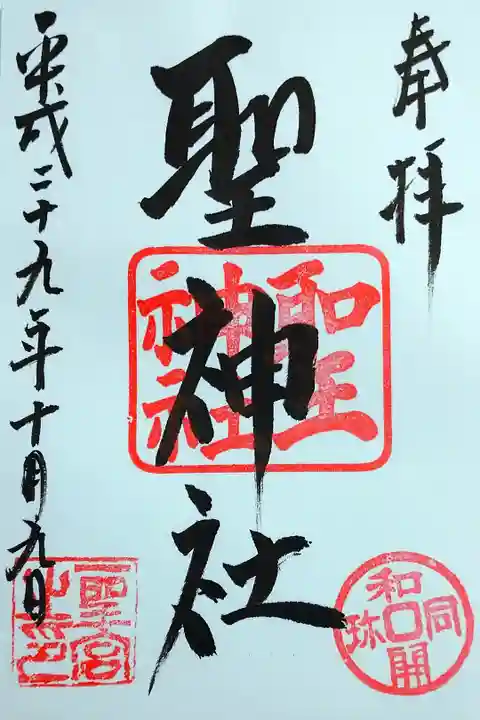 奉拝
聖神社
聖神社
平成二十九年十月九日
和同開珎
聖宮
之印